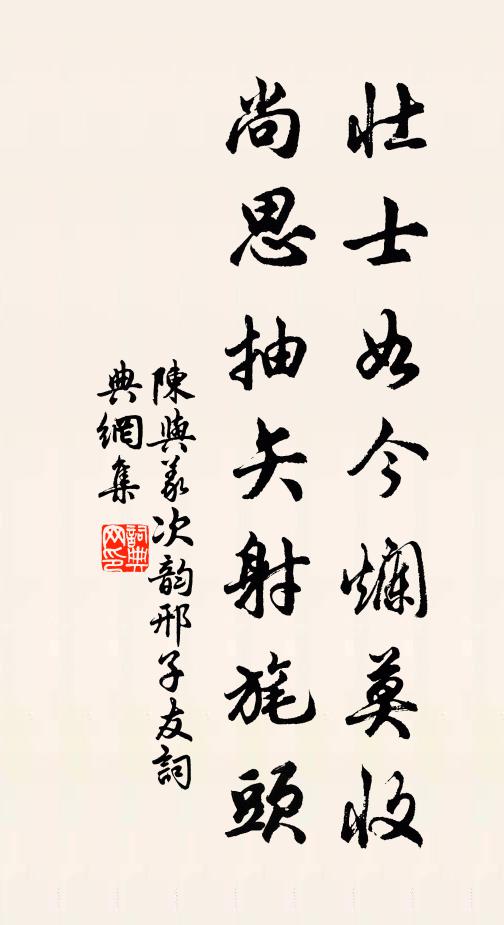 壯士如今爛莫收
尚思抽矢射旄頭
陳與義次韵邢子友詞
典網集
詞典
网印